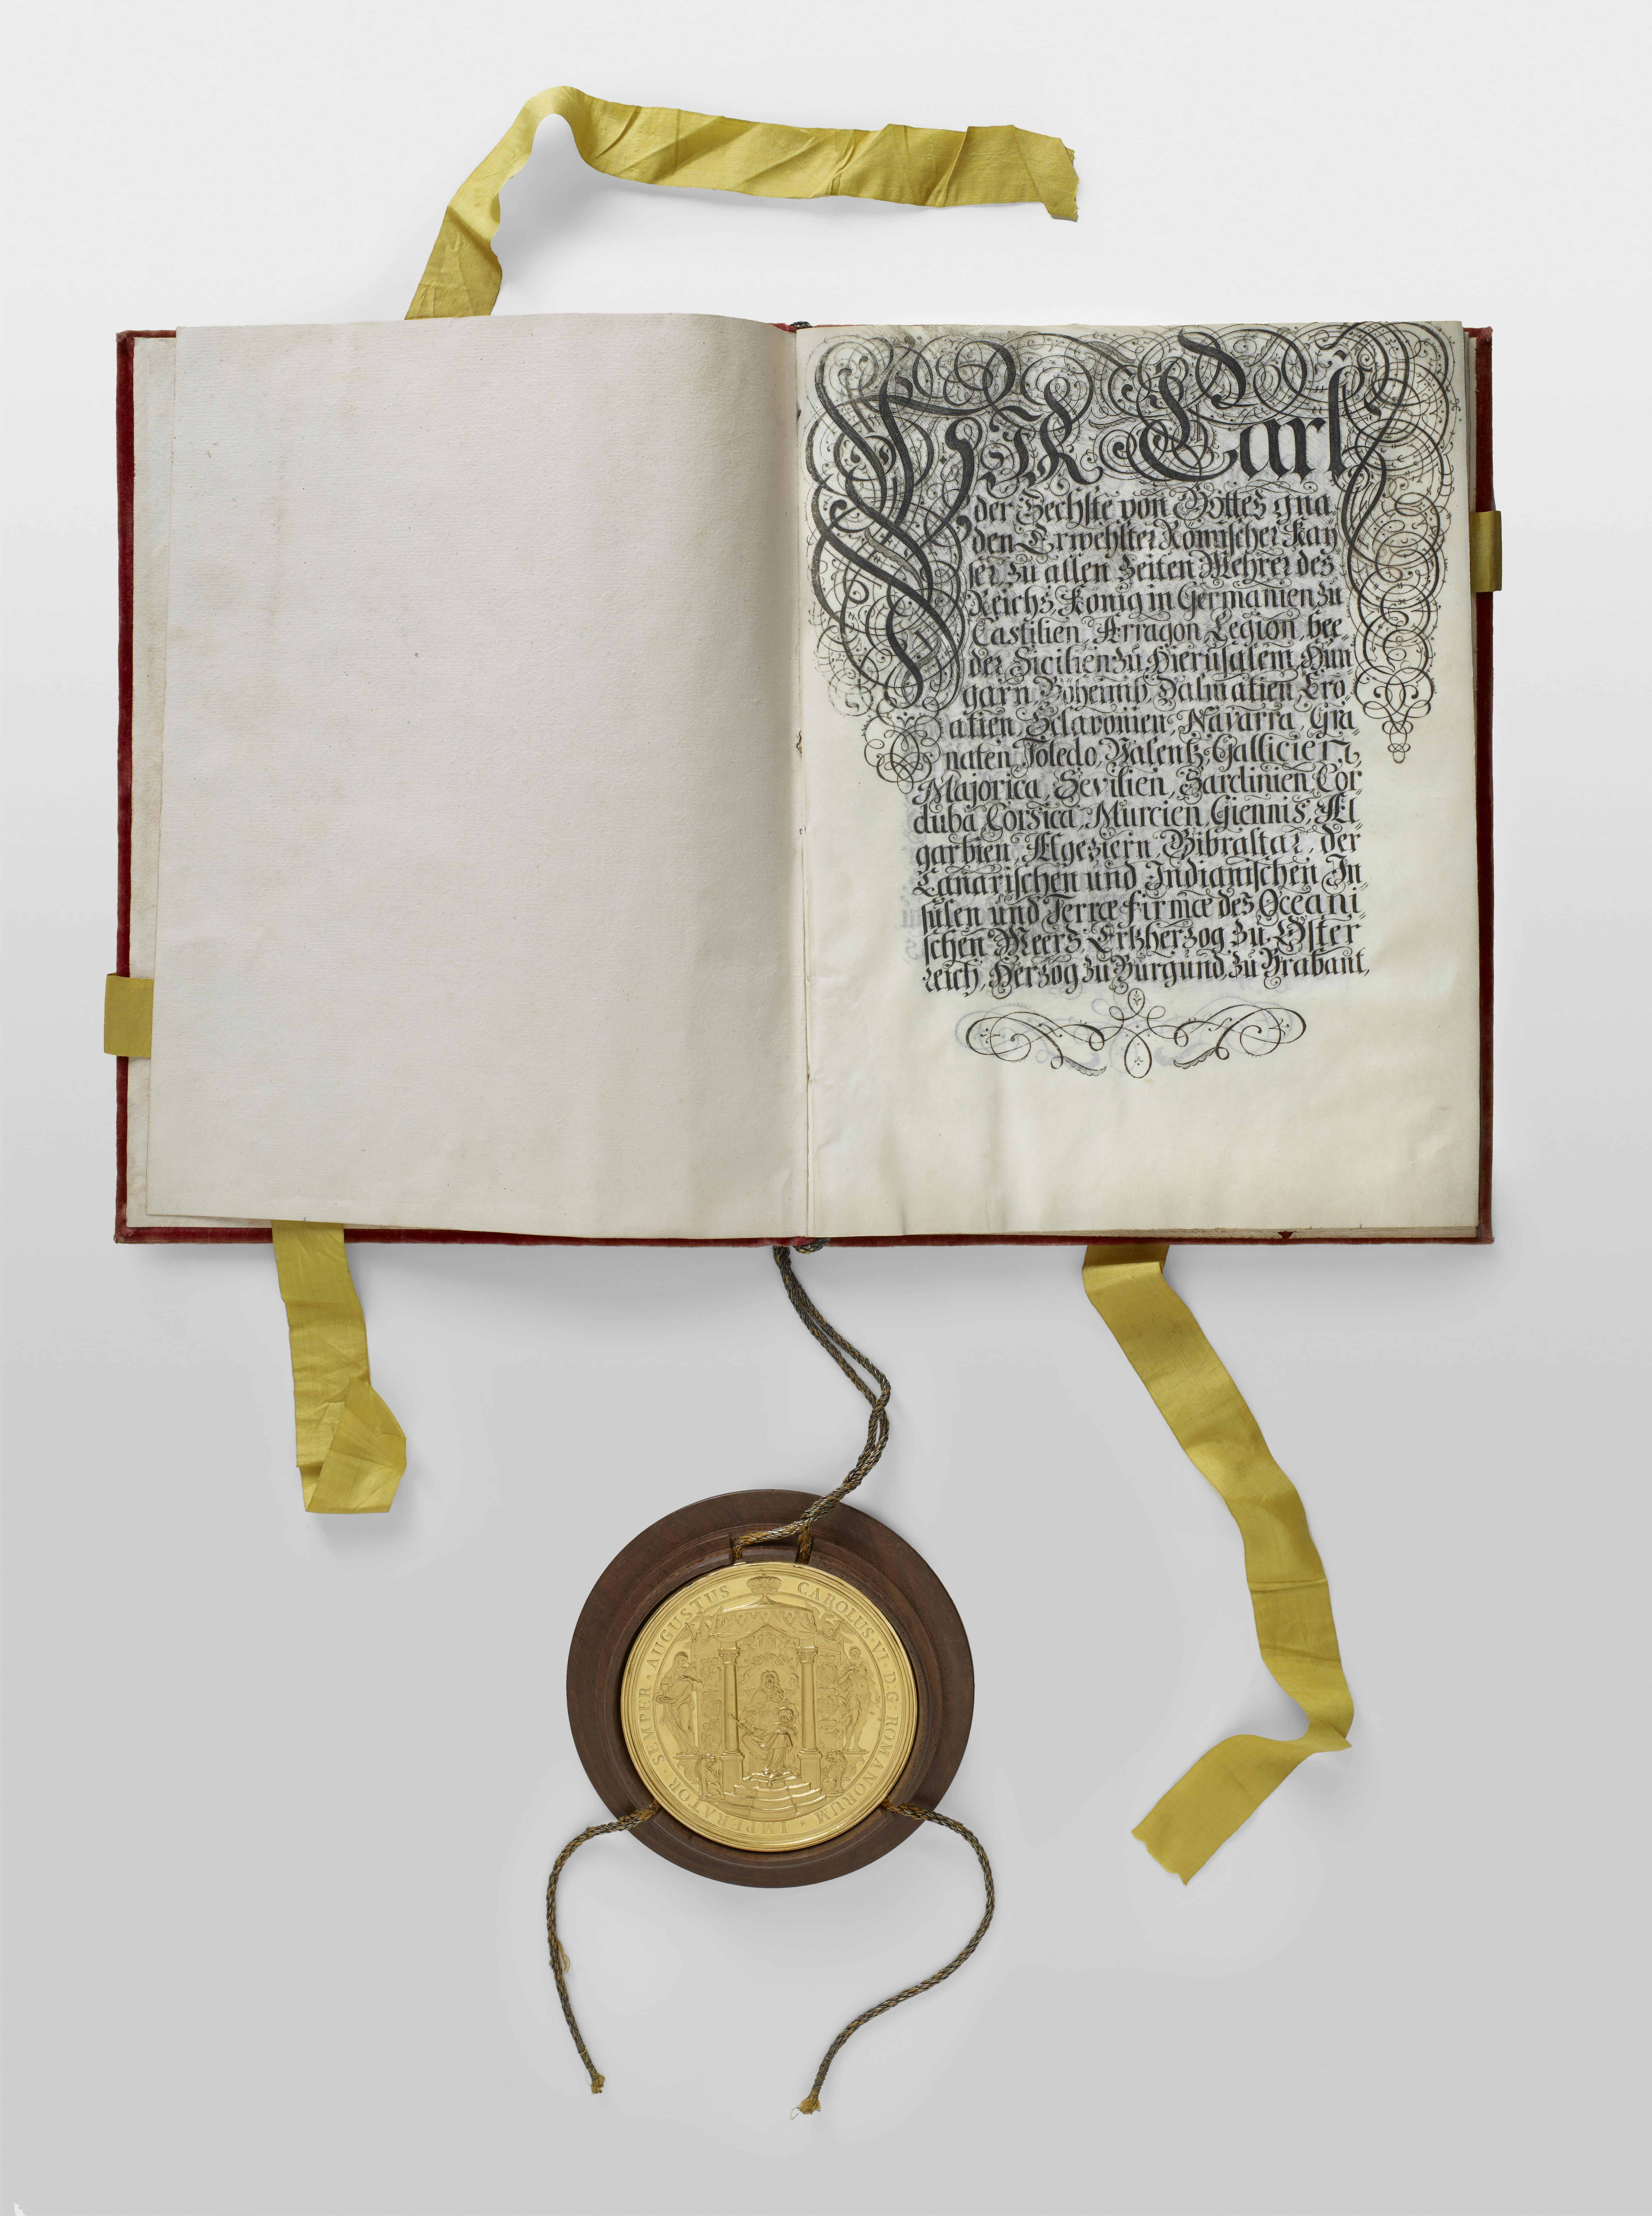 WIR Carl
der Sechste von Gottes gna,
den Erwehlter Römischer Kay
ser zu allen Zeiten Mehrer des
Reichs, König in Germanien zu
Castilien, Arragon, Legion, bee,
der Sicilien zu Hierusalem, Hun
garn, Böheimb, Dalmatien, Cro,
atien, Sclavonien, Navarra, Gra
naten, Toledo, Valentz, Gallicien,
Majorica, Sevilien, Sardinien, Cor
duba, Corsica, Murcien, Giennis, Al
garbien, Algeziern, Gibraltar, der
Canarischen und Indianischen In
sulen und Terræ firmæ des Oceani
schen Meers, Ertzherzog zu Öster
reich, Herzog zu Burgund, zu Brabant,
CAROLUS·VI·D·G·ROMANORUM·IMPERATOR·SEMPER·AUGUSTUS